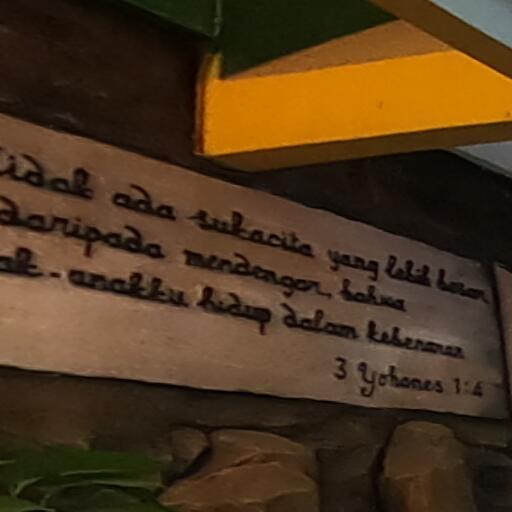 Tidak ada sukacita yang lebih besar
daripada mendengar, bahwa
ak-anakku hidup dalam kebenaran
3 Yohanes 1:4